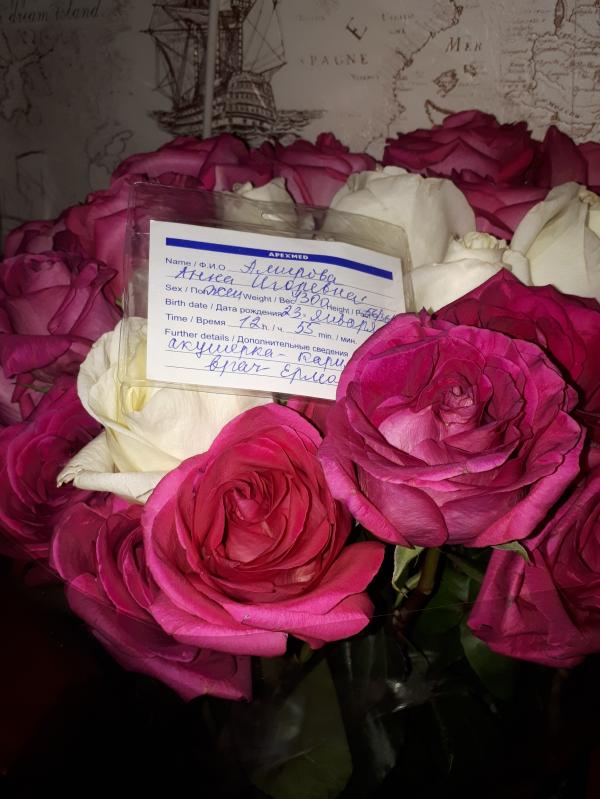 dream island
E
PAGNE
MER
APEXMED
Name / Ф.И.О Амирова
Анна Игоревна
Sex / Пол жен Weight / Вес 3300 Height / Р
Birth date / Дата рождения 23. января
Time / Время 12 h. / ч. 55 min. / мин.
Further details / Дополнительные сведения
акушерка - Кари
врач - Ермо